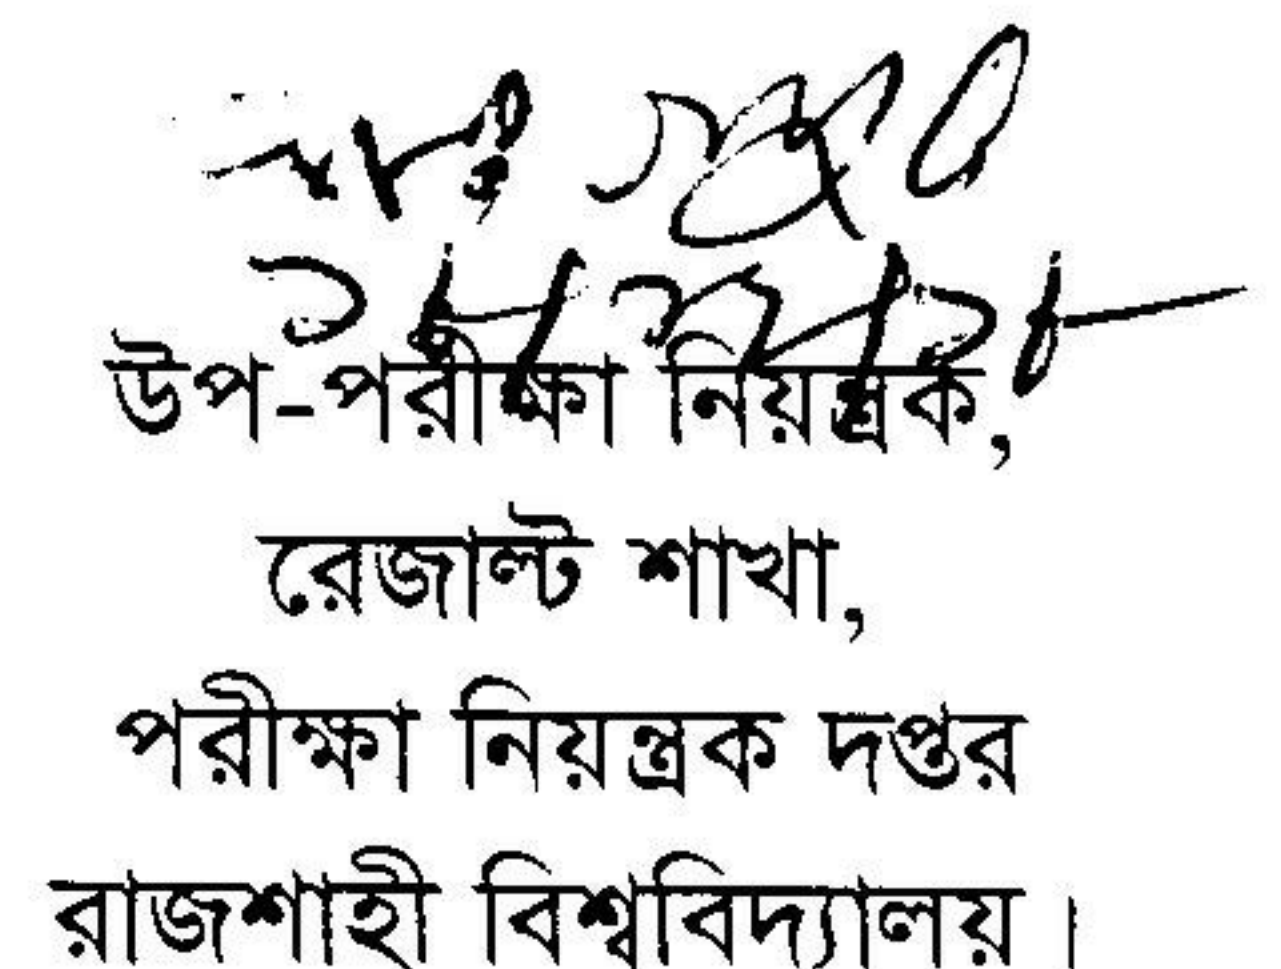 উপ-পরীক্ষা নিয়ন্ত্রক,
রেজাল্ট শাখা,
পরীক্ষা নিয়ন্ত্রক দপ্তর
রাজশাহী বিশ্ববিদ্যালয়।